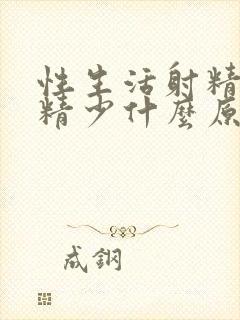 性生活射精
精少什麼原
成鋼